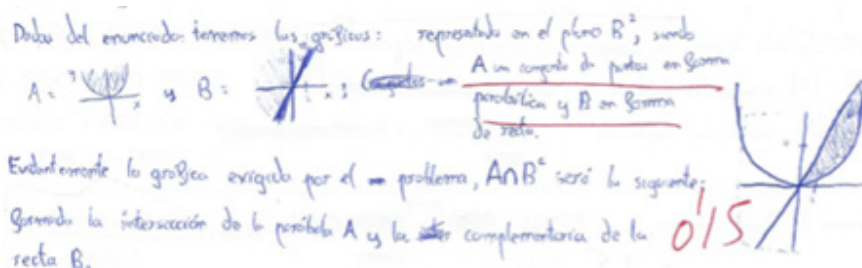 Dados del enunciado tenemos las gráficas: representado en el plano R², siendo
A = y B = ; A un conjunto de puntos en forma
parabólica y B en forma
de recta.
Evidentemente la gráfica exigida por el problema, A∩Bᶜ será la siguiente:
formada la intersección de la parábola A y la complementaria de la
recta B.
0'15